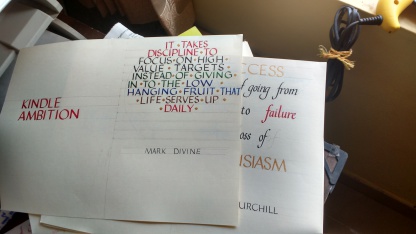 KINDLE
AMBITION
IT • TAKES
DISCIPLINE • TO
FOCUS • ON • HIGH •
VALUE • TARGETS •
INSTEAD • OF • GIVING
IN • TO • THE • LOW •
HANGING • FRUIT • THAT
• LIFE • SERVES • UP •
• DAILY •
MARK DIVINE
CCESS
going from
to failure
oss of
ISIASM
URCHILL